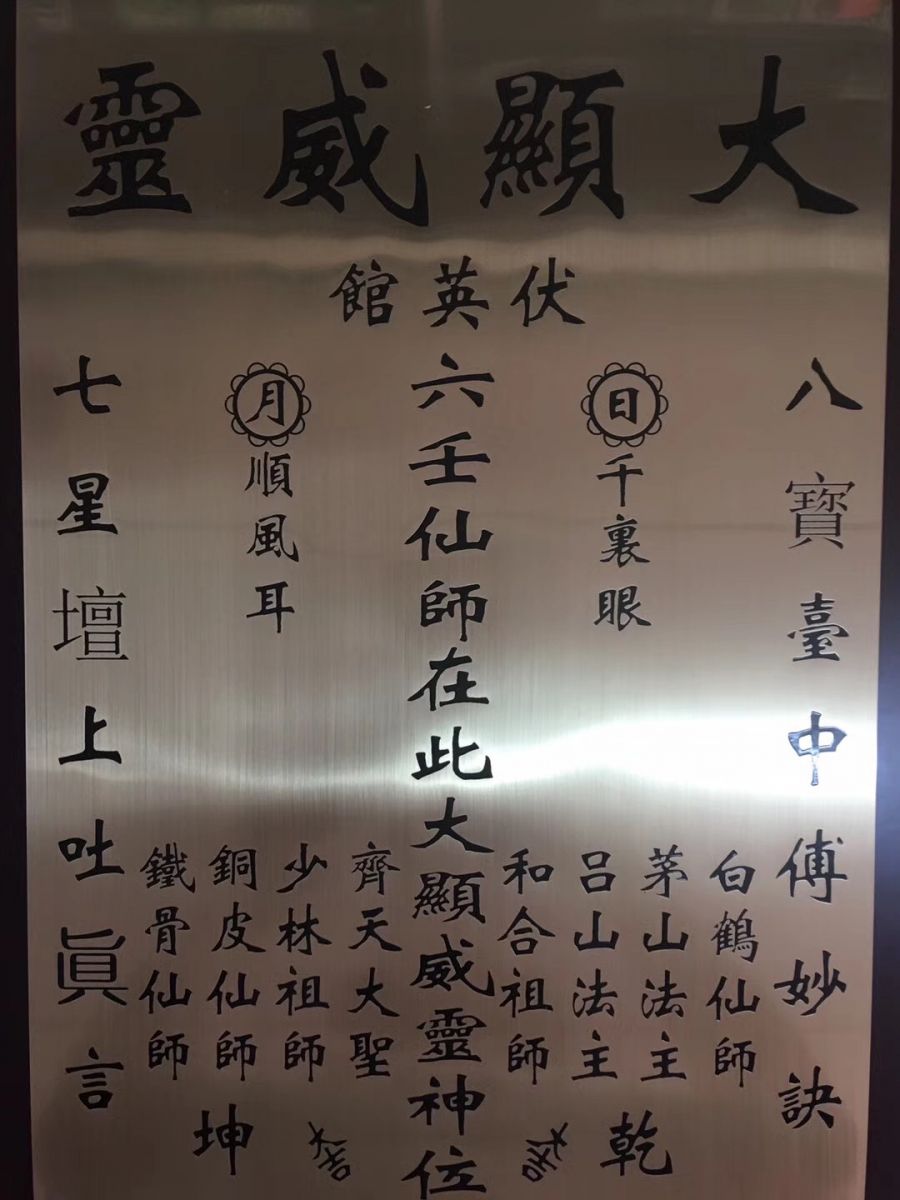 大顯威靈
伏英館
八寶臺中傅妙訣
日
千裏眼
白鶴仙師
茅山法主
呂山法主
和合祖師
乾
六壬仙師在此大顯威靈神位
月
順風耳
齊天大聖
少林祖師
銅皮仙師
鐵骨仙師
坤
七星壇上吐眞言